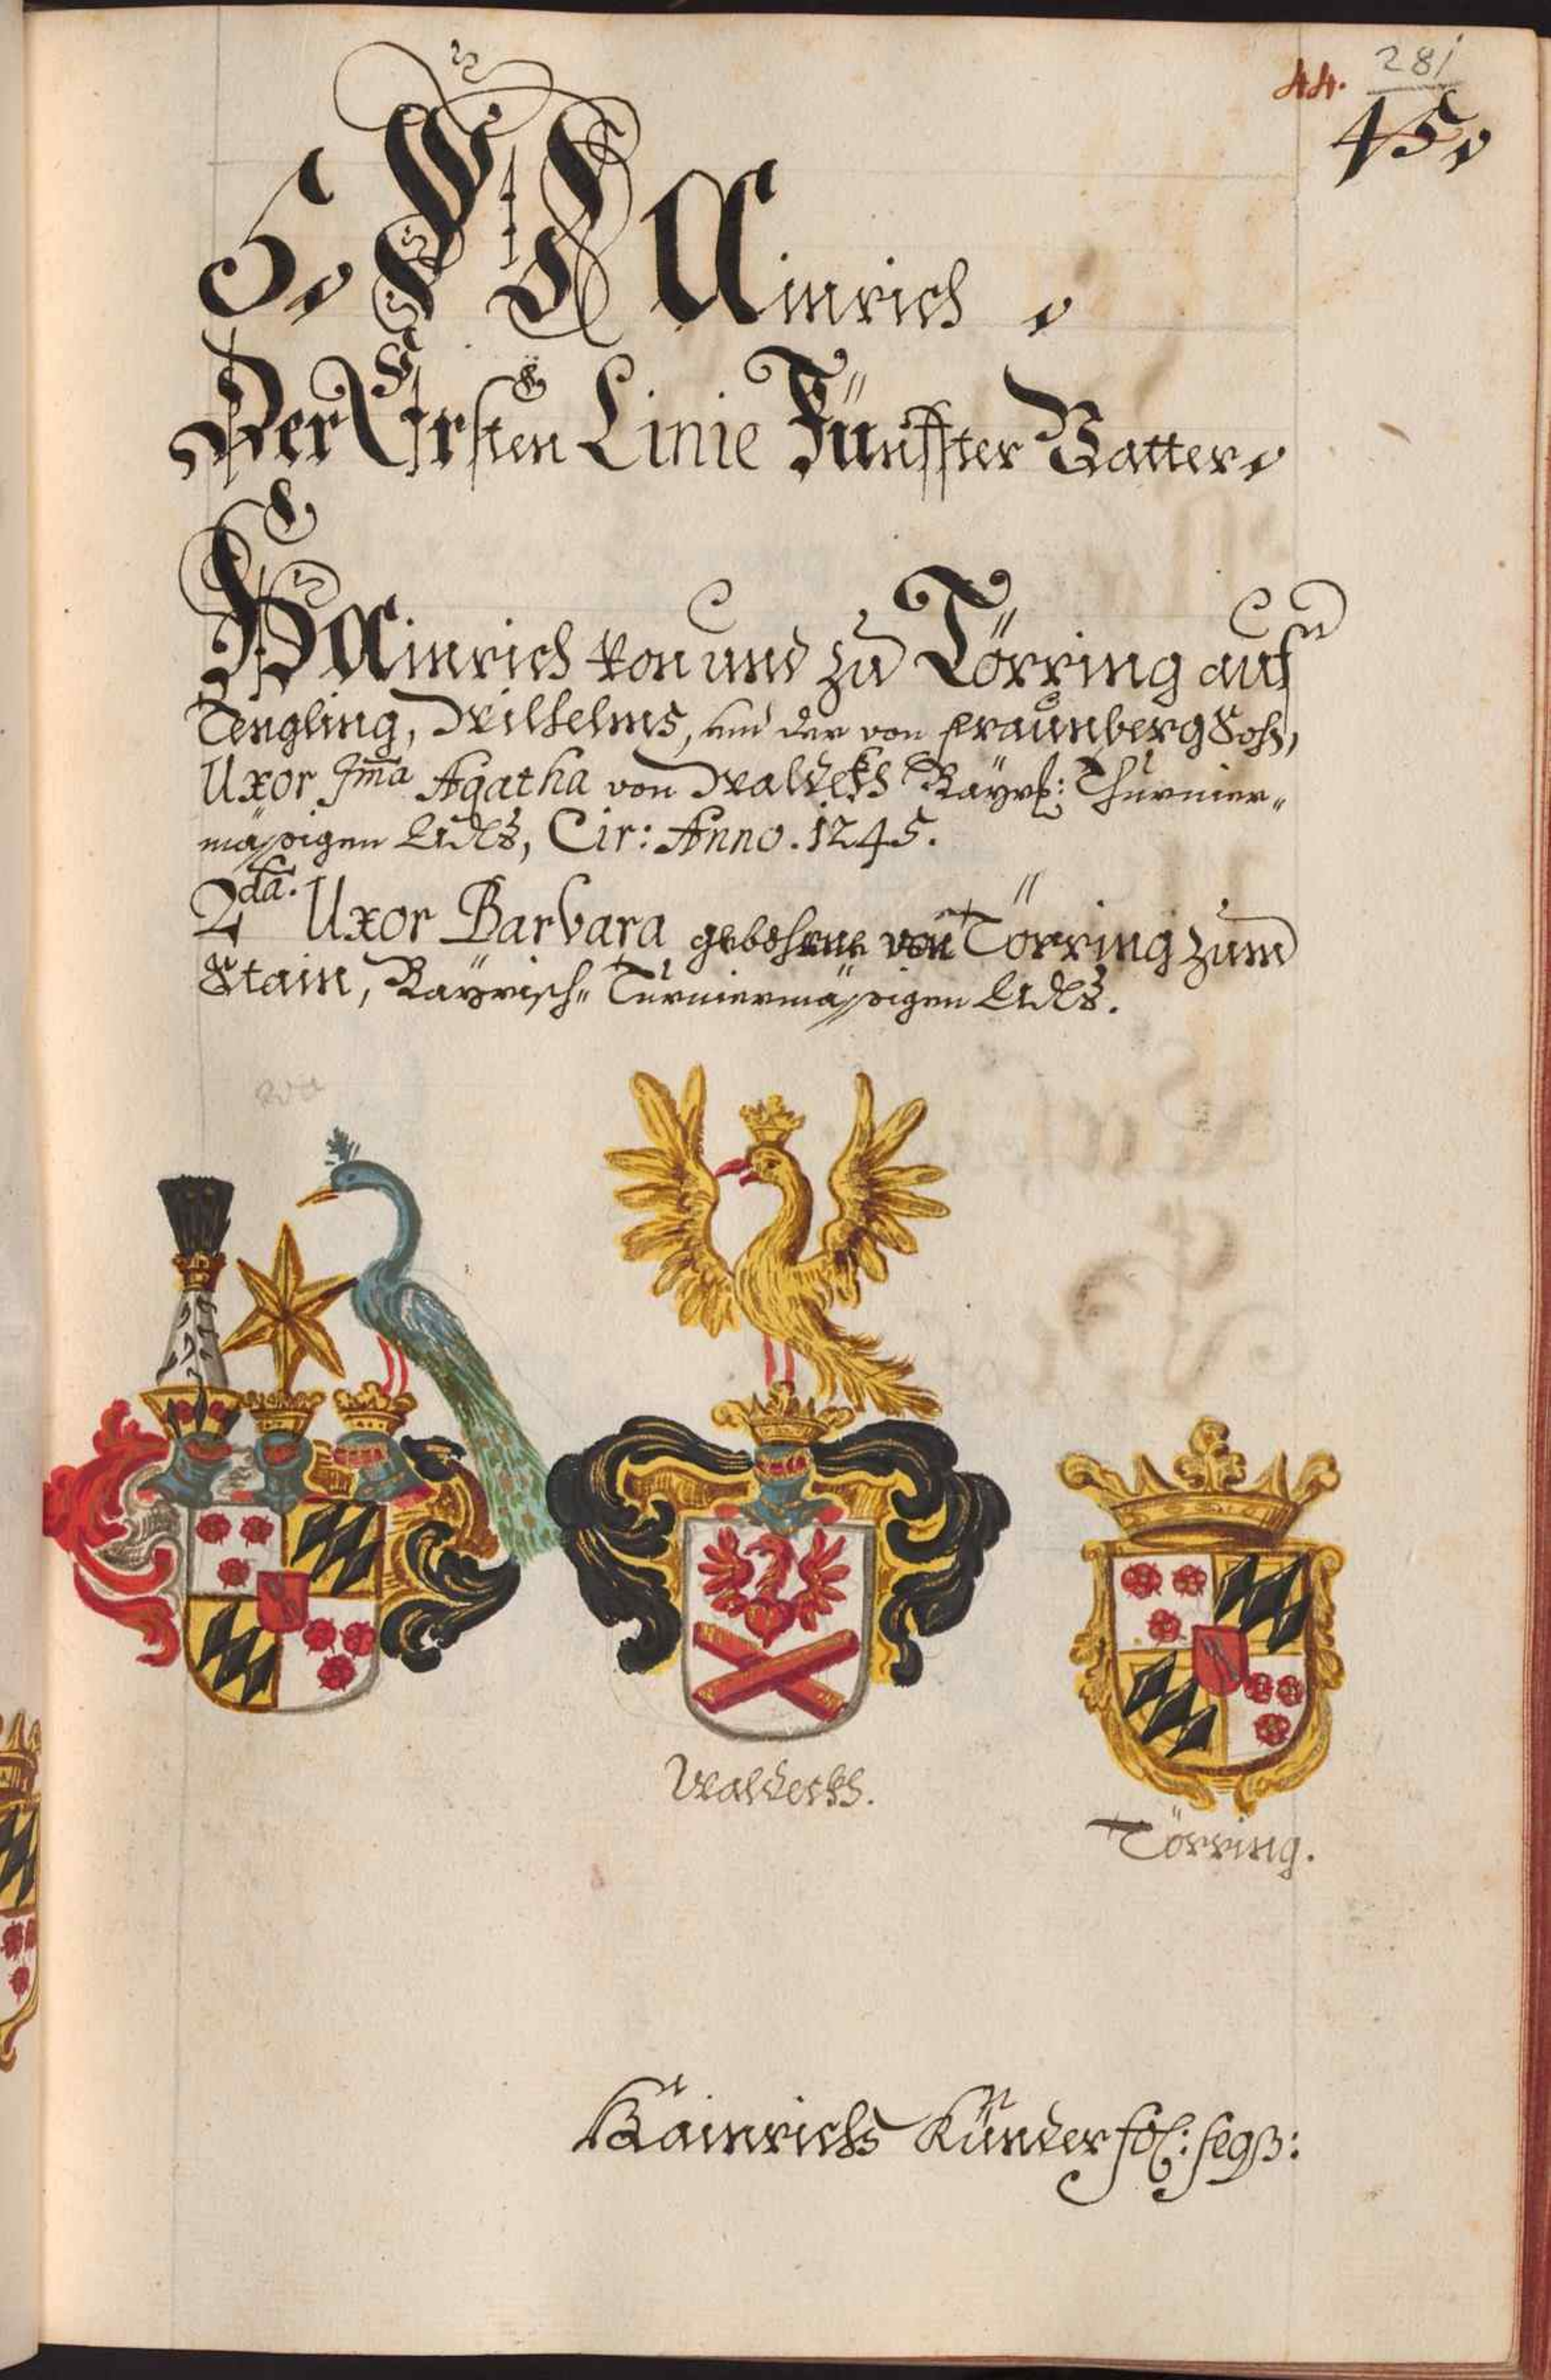 44. 281
45.
5. Hainrich.
Der Ersten Linie Fünffter Vatter.
Hainrich von und zu Törring auf
Tengling, Wilhelms, und der von fraunberg Sohn,
Uxor Ima Agatha von Waldekh Bayrl: Thurnier„
mässigen Adls, Cir: Anno. 1245.
2da. Uxor Barbara gebohrne von Törring zum
Stain, Bayrisch„ Turniermässigen Adls.
Waldeckh.
Törring.
Hainrichs Künder fol: seqβ: